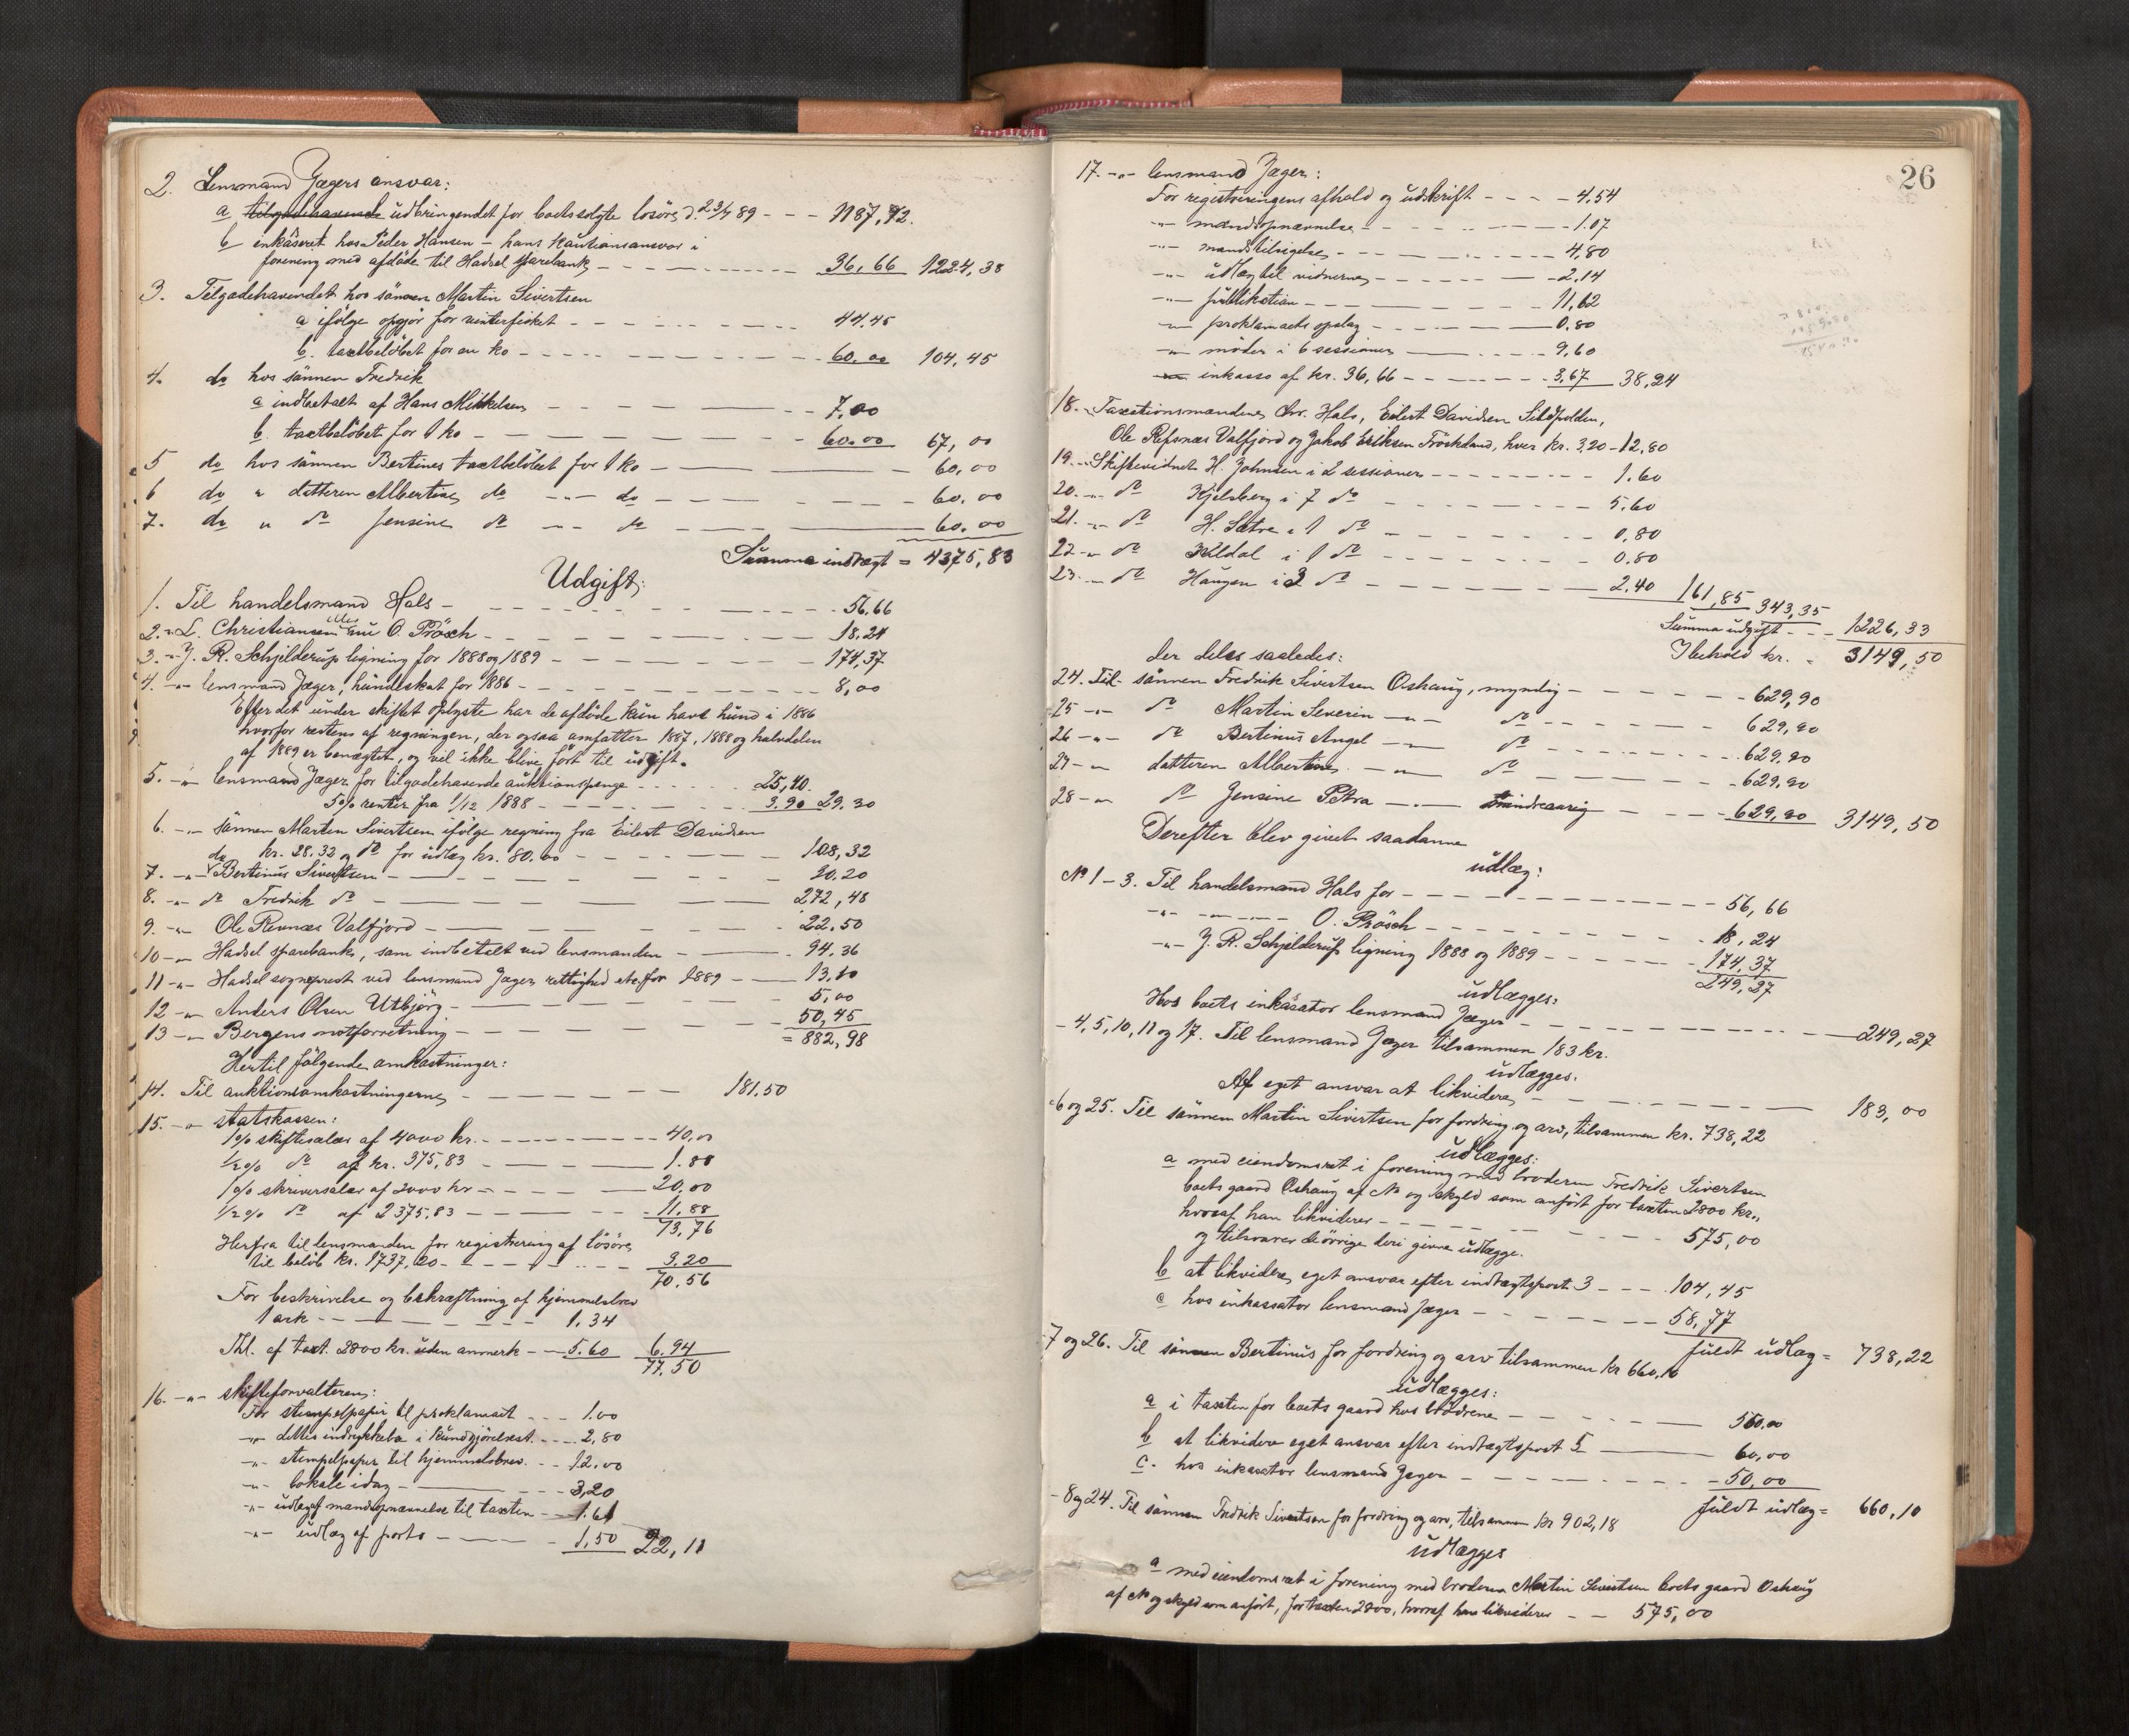 2. Lensmand Jægers ansvar:
a tilgodehavende udbringendet for boets solgte løsøre d. 23/7 89 - - - 1187,72.
b inkasseret hos Peder Hansen - hans kautionsansvar i
forening med afdøde til Hadsel sparebank - - - 36,66 1224,38
3. Tilgodehavendet hos sønnen Martin Sivertsen
a ifølge opgjør for vinterfisket - - - 44,45
b. taxtbeløbet for en ko - - - 60,00 104,45
4. do hos sønnen Fredrik
a indbetalt af Hans Mikkelsen - - - 7,00
b. taxtbeløbet for 1 ko - - - 60.00 67,00
5 do hos sønnen Bertines taxtbeløbet for 1 ko - - - 60,00
6 do " datteren Albertine do - " - do - - - 60.00
7. do " do Jensine do - " - do - - - 60.00
Summa indtægt = 4375,83
Udgift:
1. Til handelsmand Hals - - - 56.66
2. - " - L. Christiansen O. Prösch - - - 18.24
3. - " - J. R. Schjelderup ligning for 1888 og 1889 - - - 174,37
4. - " - lensmand Jæger, hundeskat for 1886 - - - 8,00
Efter det under skiftet oplyste har de afdøde kun havt hund i 1886
hvorfor restens af regningen, der ogsaa omfatter 1887, 1888 og halvdelen
af 1889 er benægtet, og vil ikke blive ført til udgift.
5. - " - lensmand Jæger for tilgodehavende auktionspenge - - - 25,40.
5% renter fra 1/12 1888 - - - 3.90 29.30
6. - " - sønnen Martin Sivertsen ifølge regning fra Eilert Davidsen
kr. 28.32 og do for udlæg kr. 80.00 - - - 108,32
7. - " - do Bertinus Sivertsen - - - 20.20
8. - " - do Fredrik do - - - 272,48
9. - " - Ole Revnæs Valfjord - - - 22.50
10 - " - Hadsel sparebank, som indbetalt ved lensmanden - - - 94.36
11 - " - Hadsel sogneprest ved lensmand Jæger, rettighed etc. for 1889 - - - 13,10
12 - " - Anders Olsen Utbjörg - - - 5,00
13 - " - Bergens notforretning - - - 50,45
= 882,98
Hertil følgende omkostninger:
14. Til auktionsomkostningerne - - - 181.50
15. - " - statskassen:
1% skiftesalær af 4000 kr. - - - 40,00
1/2% do af kr. 375,83 - - - 1.88
1% skriversalær af 2000 kr - - - 20,00
1/2% do af 2375,83 - - - 11,88
73,76
Herfra til lensmanden for registrering af løsøre
til beløb kr. 1737,20 - - - 3.20
70.56
For beskrivelse og bekræftning af hjemmelsbrev
1 ark - - - 1.34
Thl. af taxt. 2800 kr. uden anmerk - - 5.60 6.94
77,50
16. - " - skifteforvalteren:
For stempelpapir til proklamaet - - - 1.00
- " - dettes indrykkelse i Kundgjörelsest. - - - 2,80
- " - stempelpapir til hjemmelsbrev - - - 12.00
- " - lokale idag - - - 3,20
- " - udlæg af mandsopnævnelse til taxten - - 1.61
- " - udlæg af porto - - - 1,50 22,11
26
17. - " - lensmand Jæger:
For registreringens afhold og udskrift - - - 4,54
- " - mandsopnævnelse - - - 1.07
- " - mandstilsigelse - - - 4,80
- " - udlæg til vidnerne - - - 2.14
- " - publikation - - - 11,62
- " - proklamaets opslag - - - 0.80
- " - møder i 6 sessioner - - - 9,60
- " - inkasso af kr. 36,66 - - - 3,67 38,24
18. - " Taxationsmændene Chr. Hals, Eilert Davidsen Sildpolden,
Ole Refsnæs Valfjord og Jakob Eriksen Fröskland, hver kr. 3.20 - 12,80
19. - " - Skiftevidnet H. Johnsen i 2 sessioner - - - 1.60
20. - " - do Kjelsberg i 7 do - - - 5.60
21. - " - do H. Sætre i 1 do - - - 0,80
22 - " - do Kildal i 1 do - - - 0.80
23. - " - do Haugen i 3 do - - - 2.40 161,85 343,35
Summa udgift - - - 1226,33
Ibehold kr. = 3149,50
der deles saaledes:
24. Til sønnen Fredrik Sivertsen Oshaug, myndig - - - 629,90
25 - " - do Martin Severin - " - do - - - 629,90
26 - " - do Bertinus Angel - " - do - - - 629,90
27 - " - datteren Albertine - " - do - - - 629,90
28 - " - do Jensine Petra - " - mindreaarig - - - 629,90 3149,50
Derefter blev givet saadanne
udlæg:
No 1 - 3. Til handelsmand Hals for - - - 56,66
- " - - " - O. Prösch - - - 18,24
- " - J. R. Schjelderup ligning 1888 og 1889 - - - 174,37
249,27
udlægges:
Hos boets inkasator lensmand Jæger - - - 249,27
- 4, 5, 10, 11 og 17. Til lensmand Jæger tilsammen 183 kr.
udlægges.
Af eget ansvar at likvidere - - - 183,00
- 6 og 25. Til sønnen Martin Sivertsen for fordring og arv, tilsammen kr. 738,22
udlægges:
a med eiendomsret i forening med broderen Fredrik Sivertsen
boets gaard Oshaug af No og skyld som anført for taxten 2800 kr.,
hvoraf han likviderer - - - 575,00
og tilsvarer de øvrige deri givne udlægge.
b at likvidere eget ansvar efter indtægtspost 3 - - - 104,45
c hos inkassator lensmand Jæger - - - 58,77
fuldt udlæg = 738,22
- 7 og 26. Til sønnen Bertinus for fordring og arv tilsammen kr 660,10
udlægges:
a i taxten for boets gaard hos brödrene - - - 550,00
b at likvidere eget ansvar efter indtægtspost 5 - - - 60,00
c. hos inkasator lensmand Jæger - - - 50,00
fuldt udlæg = 660,10
- 8 og 24. Til sønnen Fredrik Sivertsen for fordring og arv, tilsammen kr 902,18
udlægges
a med eiendomsret i forening med broderen Martin Sivertsen boets gaard Oshaug
af No og skyld som anført, for taxten 2800, hvoraf han likviderer - - 575,00